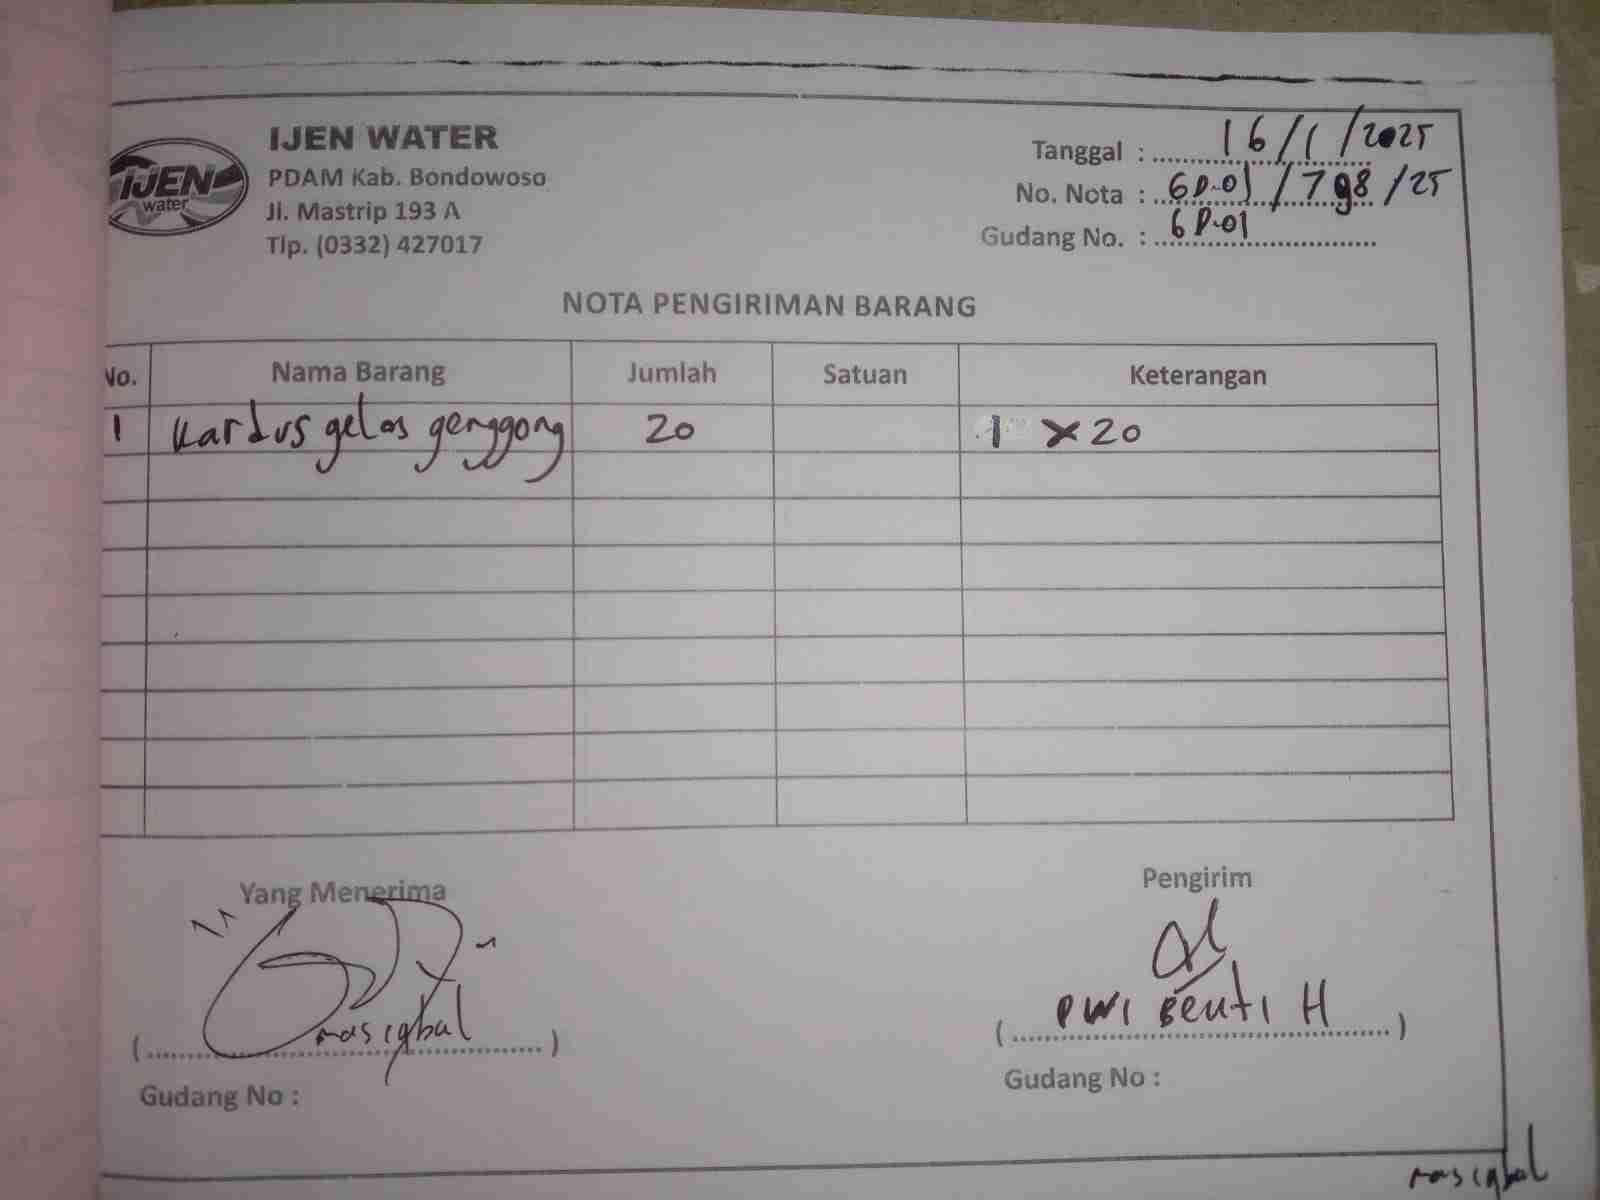 IJEN
water
IJEN WATER
PDAM Kab. Bondowoso
Jl. Mastrip 193 A
Tlp. (0332) 427017
Tanggal : 16/1/2025
No. Nota : GD.01/798/25
Gudang No. : GD.01
NOTA PENGIRIMAN BARANG
No. Nama Barang Jumlah Satuan Keterangan
1 Kardus gelas genggong 20 1 x 20
Yang Menerima
Pengirim
( mas iqbal )
( DWI BEUTI H )
Gudang No :
Gudang No :
mas iqbal